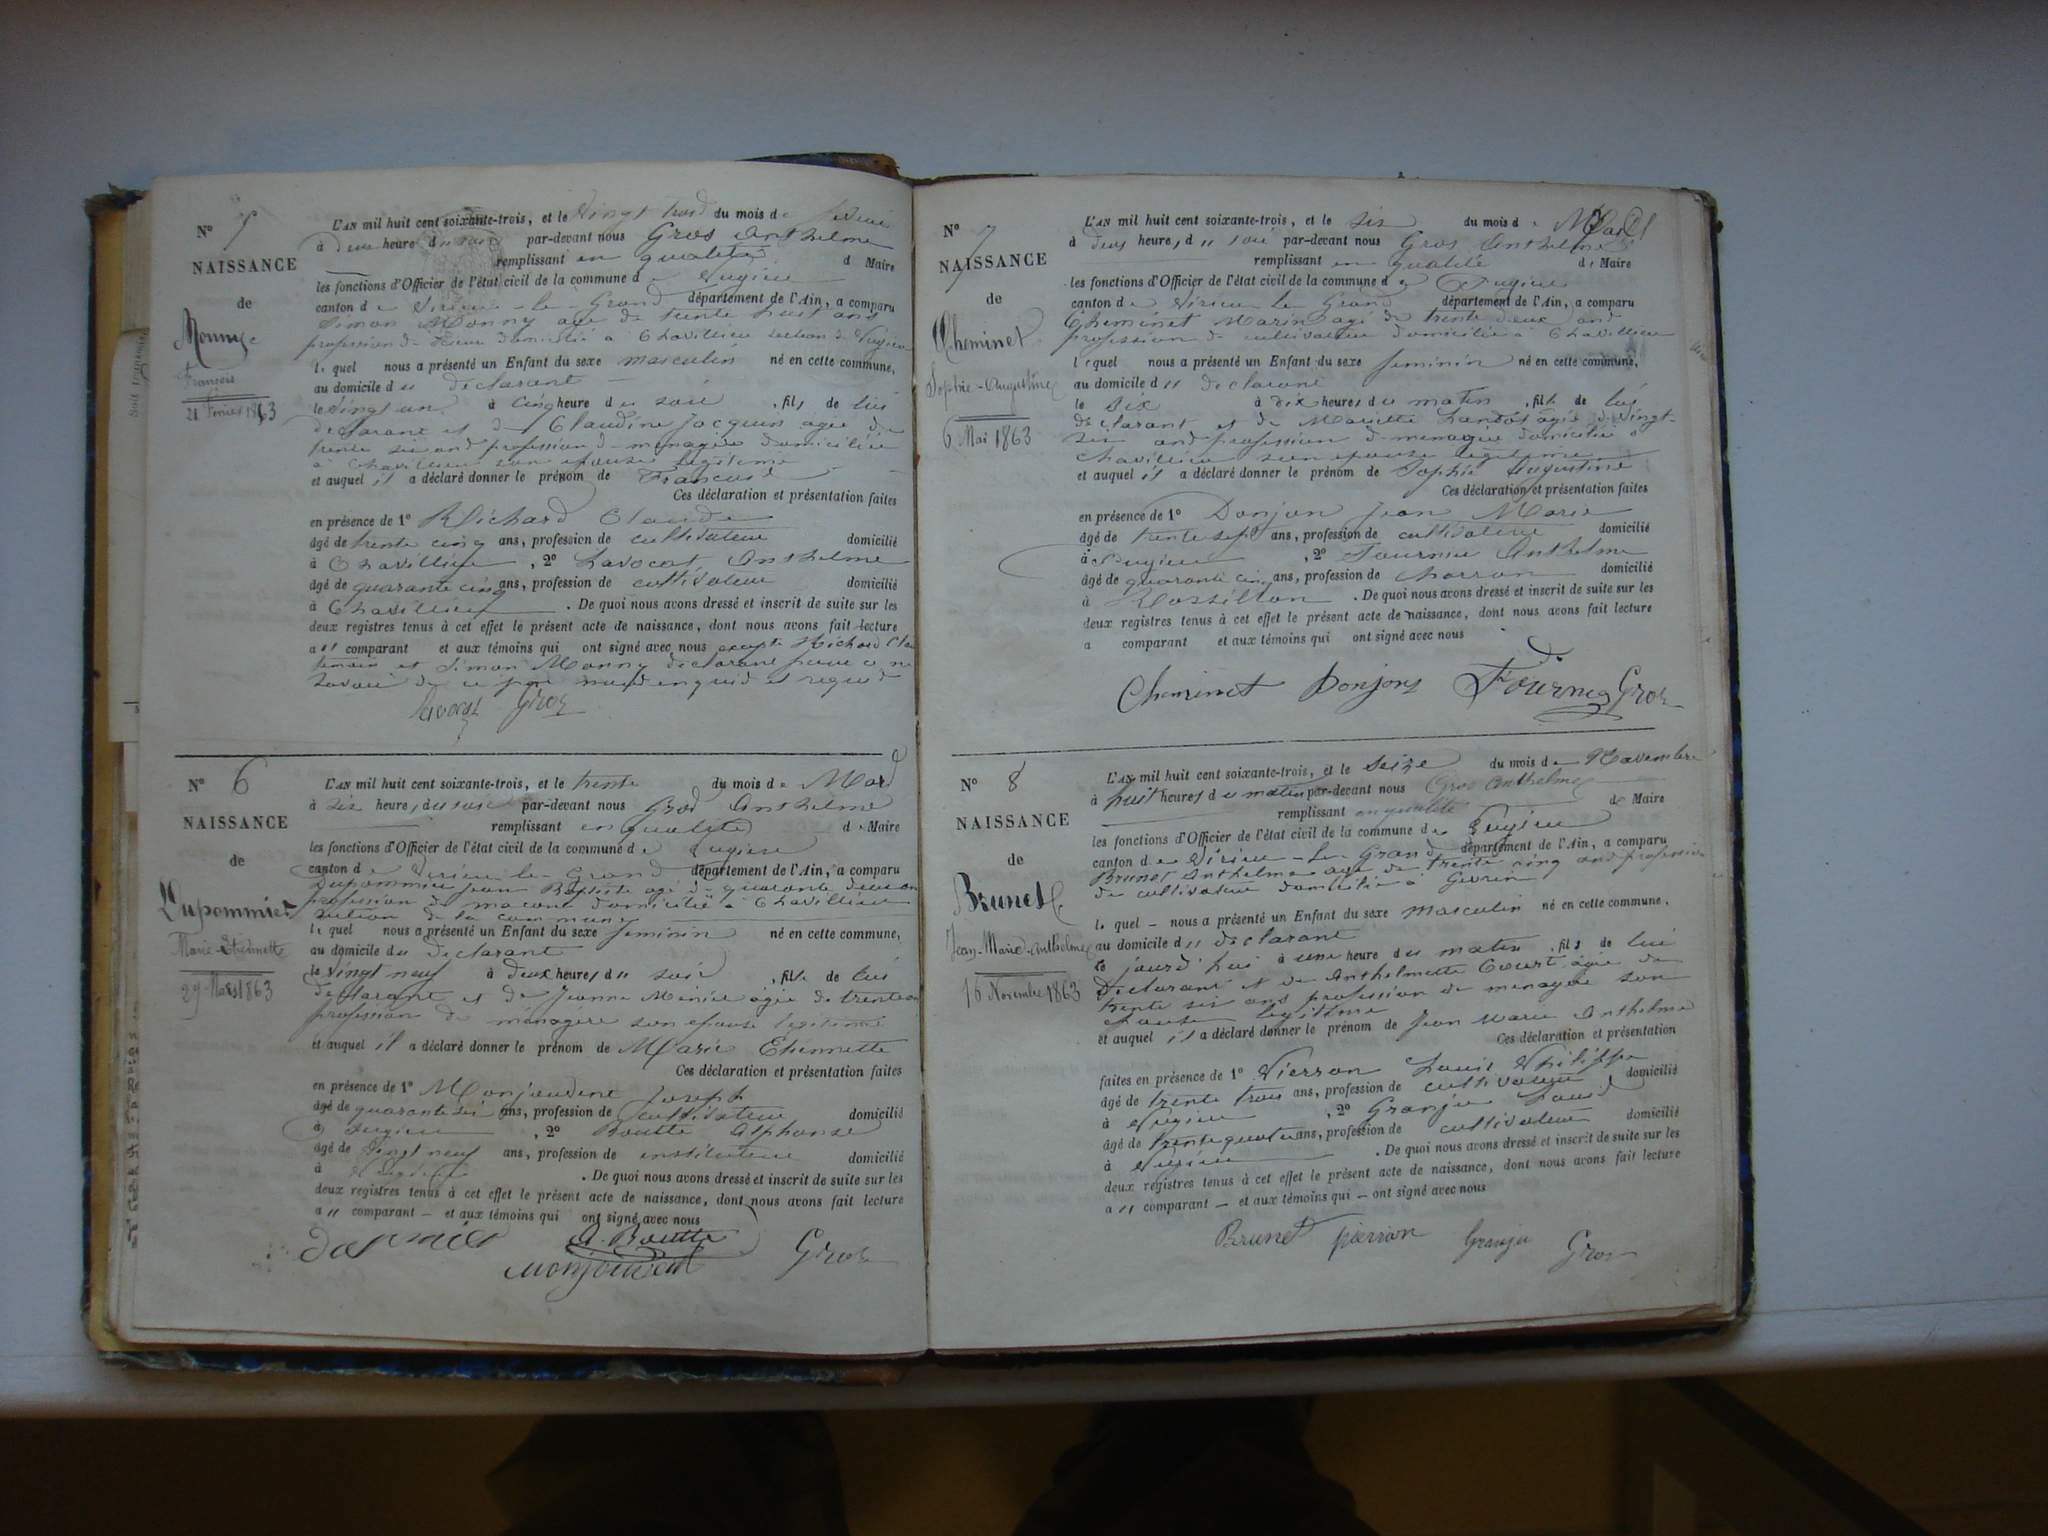 N° 5
NAISSANCE
de
Monny
François
21 Fevrier 1863
L'AN mil huit cent soixante-trois, et le vingt trois du mois de
à deux heure du soir par-devant nous Gros Anthelme
remplissant en qualité d Maire
les fonctions d'Officier de l'état civil de la commune de Pugieu
canton de Virieu-le-Grand département de l'Ain, a comparu
Simon Monny age de trente huit ans
profession de domicilié à Chavillieu section de Pugieu
lequel nous a présenté un Enfant du sexe masculin né en cette commune,
au domicile du declarant
le vingt un à cinq heure du soir, fils de lui
declarant et de Claudine Jacquin agée de
trente six ans profession de menagère domiciliée
à Chavillieu son epouse legitime
et auquel il a déclaré donner le prénom de François
Ces déclaration et présentation faites
en présence de 1° Richard Claude
âgé de trente cinq ans, profession de cultivateur domicilié
à Chavillieu, 2° Lavocat Anthelme
âgé de quarante cinq ans, profession de cultivateur domicilié
à Chavillieu. De quoi nous avons dressé et inscrit de suite sur les
deux registres tenus à cet effet le présent acte de naissance, dont nous avons fait lecture
au comparant et aux témoins qui ont signé avec nous excepté Richard Clau
temoin et Simon Monny declarant pour ne
savoir de ce enquis et requis
Lavocat Gros
N° 6
NAISSANCE
de
Dupommier
Marie-Etiennette
29 Mars 1863
L'AN mil huit cent soixante-trois, et le trente du mois de Mars
à six heures du soir par-devant nous Gros Anthelme
remplissant en qualité de Maire
les fonctions d'Officier de l'état civil de la commune de Pugieu
canton de Virieu-le-Grand département de l'Ain, a comparu
Dupommier Jean Baptiste agé de quarante deux ans
profession de maçon domicilié à Chavillieu
section de la commune
lequel nous a présenté un Enfant du sexe feminin né en cette commune,
au domicile du declarant
le vingt neuf à deux heures du soir, fille de lui
declarant et de Jeanne agée de trente
profession de ménagère son epouse legitime
et auquel il a déclaré donner le prénom de Marie Etiennette
Ces déclaration et présentation faites
en présence de 1° Monjoudent Joseph
âgé de quarante six ans, profession de cultivateur domicilié
à Pugieu, 2° Boutte Alphonse
âgé de vingt neuf ans, profession de instituteur domicilié
à Pugieu. De quoi nous avons dressé et inscrit de suite sur les
deux registres tenus à cet effet le présent acte de naissance, dont nous avons fait lecture
au comparant – et aux témoins qui ont signé avec nous
A. Boutte
Monjoudent Gros
N° 7
NAISSANCE
de
Cheminet
Sophie-Augustine
6 Mai 1863
L'AN mil huit cent soixante-trois, et le six du mois de Mai
à deux heures du soir par-devant nous Gros Anthelme
remplissant en qualité de Maire
les fonctions d'Officier de l'état civil de la commune de Pugieu
canton de Virieu le Grand département de l'Ain, a comparu
Cheminet Marin agé de trente deux ans
profession de cultivateur domicilié à Chavillieu
lequel nous a présenté un Enfant du sexe feminin né en cette commune,
au domicile du declarant
le six à dix heures du matin, fille de lui
declarant et de Mariette agée de vingt
six ans profession de menagère domiciliée à
Chavillieu son epouse legitime
et auquel il a déclaré donner le prénom de Sophie Augustine
Ces déclaration et présentation faites
en présence de 1° Donjon Jean Marie
âgé de trente sept ans, profession de cultivateur domicilié
à Pugieu, 2° Fournier Anthelme
âgé de quarante cinq ans, profession de charron domicilié
à Rossillon. De quoi nous avons dressé et inscrit de suite sur les
deux registres tenus à cet effet le présent acte de naissance, dont nous avons fait lecture
a comparant et aux témoins qui ont signé avec nous
Cheminet Donjon Fournier Gros
N° 8
NAISSANCE
de
Brunet
Jean-Marie-Anthelme
16 Novembre 1863
L'AN mil huit cent soixante-trois, et le seize du mois de Novembre
à huit heures du matin par-devant nous Gros Anthelme
remplissant en qualité de Maire
les fonctions d'Officier de l'état civil de la commune de Pugieu
canton de Virieu-le-Grand département de l'Ain, a comparu
Brunet Anthelme agé de trente cinq ans profession
de cultivateur domicilié à Gevrin
lequel – nous a présenté un Enfant du sexe masculin né en cette commune,
au domicile du declarant
le jourd'hui à une heure du matin, fils de lui
declarant et de Anthelmette Court agée de
trente six ans profession de menagère son
epouse legitime
et auquel il a déclaré donner le prénom de Jean Marie Anthelme
Ces déclaration et présentation
faites en présence de 1° Pierron Louis Philippe
âgé de trente trois ans, profession de cultivateur domicilié
à Pugieu, 2° Granju Louis
âgé de trente quatre ans, profession de cultivateur domicilié
à Pugieu. De quoi nous avons dressé et inscrit de suite sur les
deux registres tenus à cet effet le présent acte de naissance, dont nous avons fait lecture
au comparant – et aux témoins qui – ont signé avec nous
Brunet pierron Granju Gros